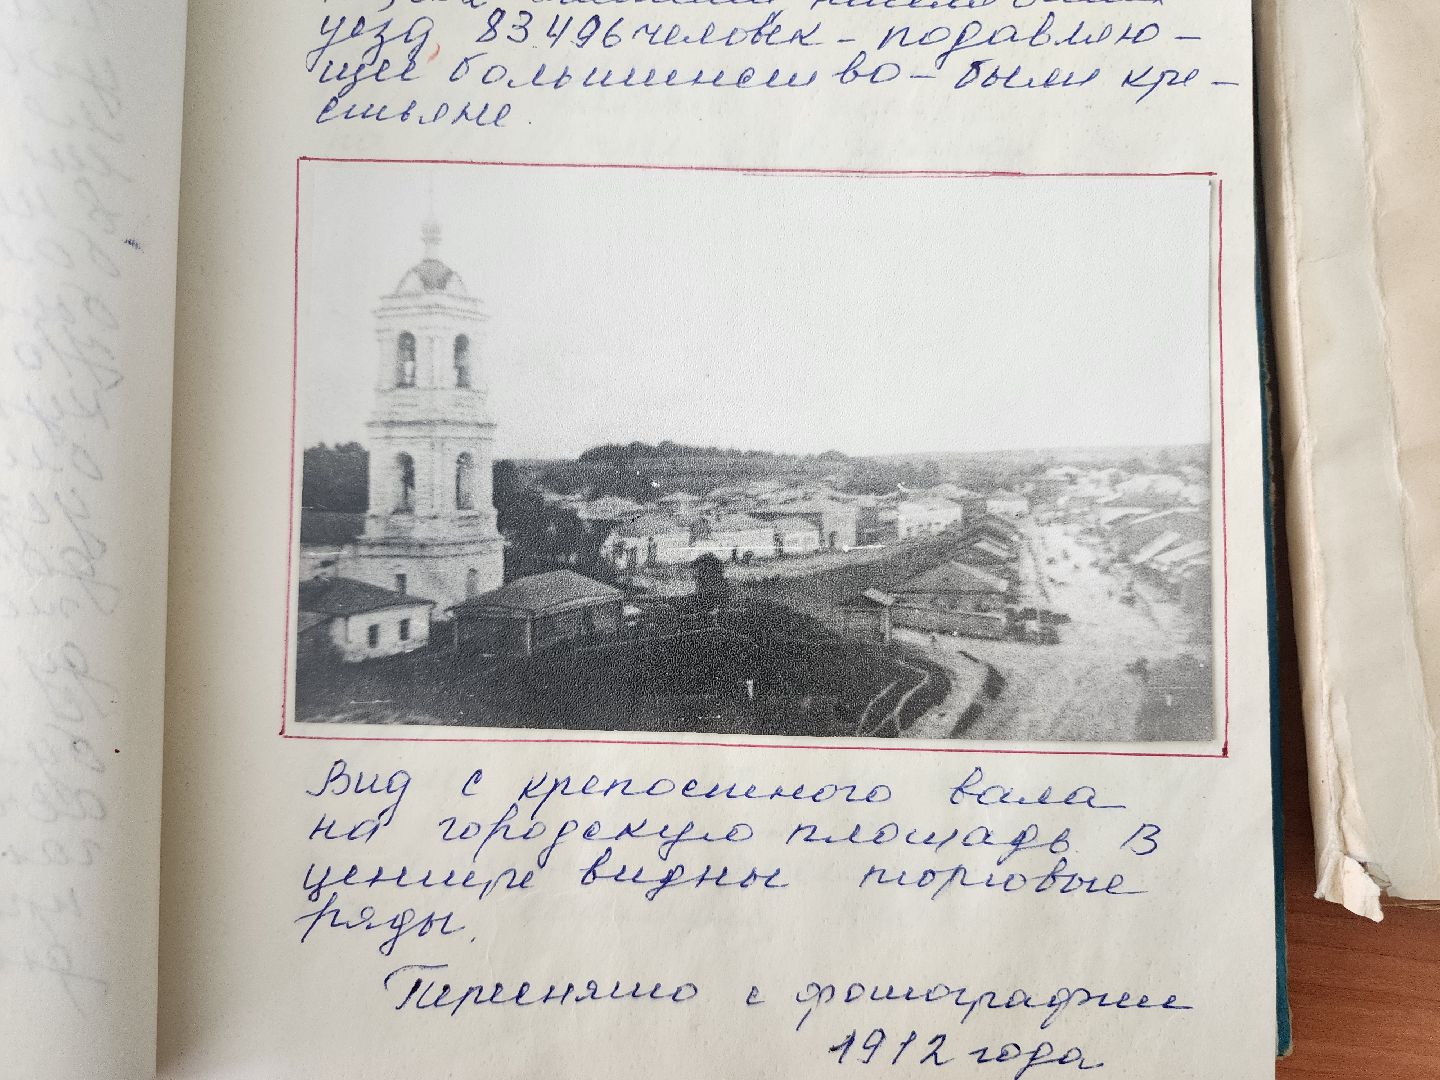 уезд 83 496 человек - подавляю-
щее большинство - были кре-
стьяне.
Вид с крепостного вала
на городскую площадь. В
центре видны торговые
ряды.
Переснято с фотографии
1912 года